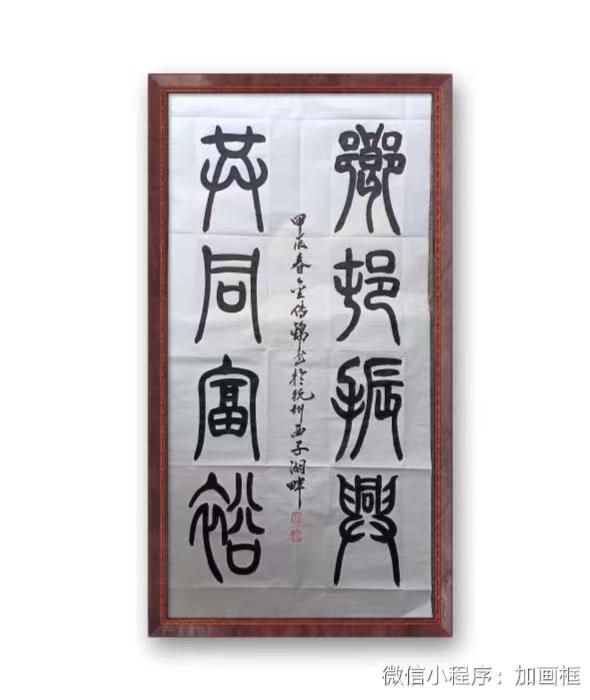 鄉邨振興
共同富裕
甲辰春金传书於杭州西子湖畔
微信小程序：加画框